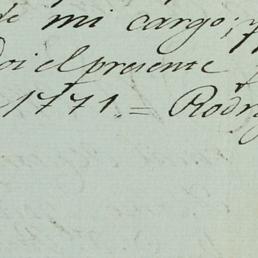 de mi cargo; y
Doi el presente
1771. = Rodr